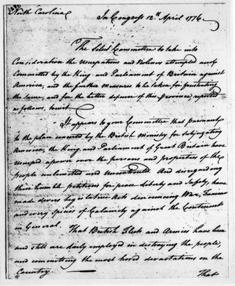 North Carolina
In Congress 12th April 1776.
The Select Committee to take into
Consideration the Usurpations and Violences attempted and
Committed by the King and Parliament of Britain against
America, and the further Measures to be taken for frustrating
the same, and for the better defence of this province; reported
as follows, to wit
It appears to your Committee that pursuant
to the plan concerted by the British Ministry for subjugating
America, the King and Parliament of Great Britain have
usurped a power over the persons and properties of the
People unlimited and uncontrouled. And disregarding
their humble petitions for peace Liberty and Safety, have
made divers Legislative Acts denouncing War, Famine
and every species of Calamity against the Continent
in General. That British Fleets and Armies have been
and still are daily employed in destroying the people,
and committing the most horrid devastations on the
Country.
That